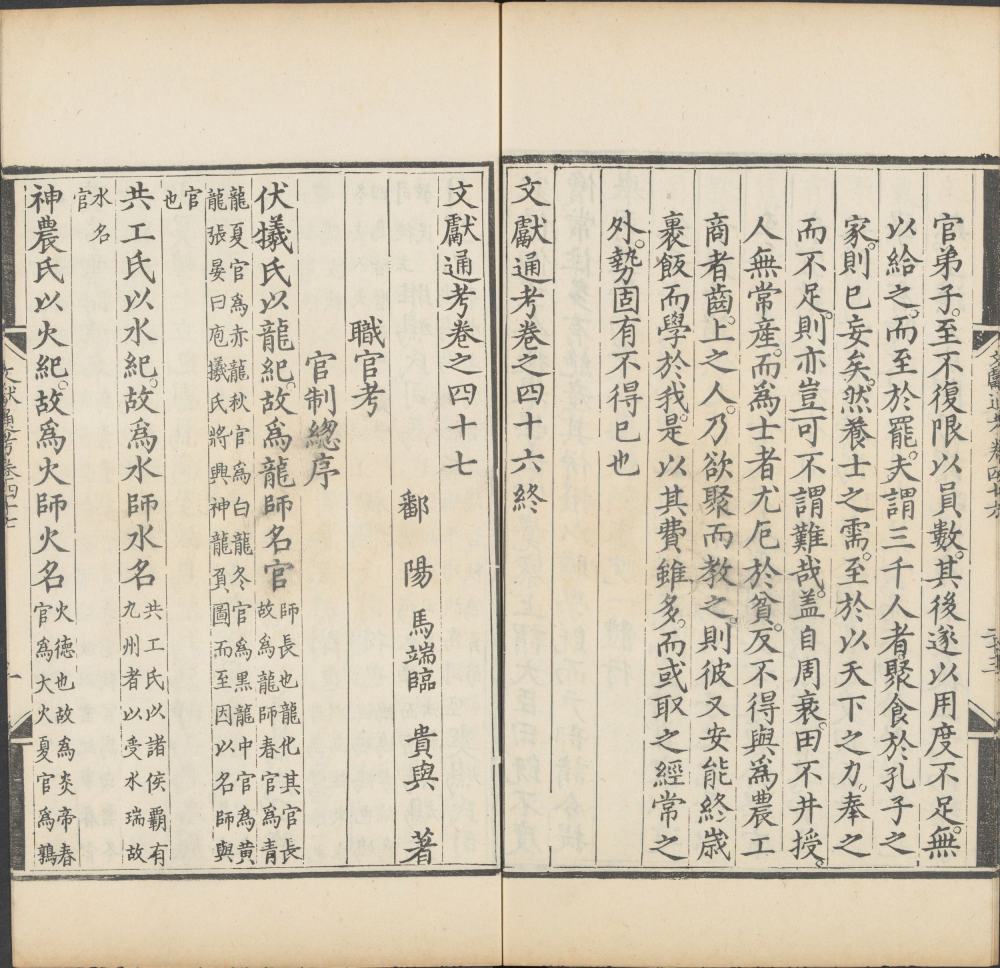 官弟子。至不復限以員數。其後遂以用度不足。無
以給之。而至於罷。夫謂三千人者。聚食於孔子之
家。則已妄矣。然養士之需。至於以天下之力。奉之
而不足。則亦豈可不謂難哉。蓋自周衰。田不井授。
人無常產。而爲士者尤厄於貧。反不得與爲農工
商者齒。上之人。乃欲聚而教之。則彼又安能終歲
裹飯而學於我。是以其費雖多。而或取之經常之
外。勢固有不得已也
文獻通考卷之四十六終
文獻通考卷之四十七
鄱陽馬端臨貴與著
職官考
官制總序
伏犧氏以龍紀。故爲龍師名官師長也龍化其官長
故爲龍師春官爲青
龍夏官爲赤龍秋官爲白龍冬官爲黑龍中官爲黃
龍張晏曰庖犧氏將興神龍負圖而至因以名師與
官
也
共工氏以水紀。故爲水師水名共工氏以諸侯霸有
九州者以受水瑞故
水名
官
神農氏以火紀。故爲火師火名火德也故爲炎帝春
官爲大火夏官爲鶉
文獻通考卷四十七